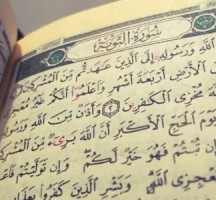 سُورَةُ التَّوْبَةِ
ٱللَّهِ وَرَسُولِهِۦٓ إِلَى ٱلَّذِينَ عَٰهَدتُّم مِّنَ ٱلْمُشْرِكِينَ
ٱلْأَرْضِ أَرْبَعَةَ أَشْهُرٍ وَٱعْلَمُوٓا۟ أَنَّكُمْ غَيْرُ مُعْجِزِى
مُخْزِى ٱلْكَٰفِرِينَ ٢ وَأَذَٰنٌ مِّنَ ٱللَّهِ وَرَسُولِهِۦٓ
يَوْمَ ٱلْحَجِّ ٱلْأَكْبَرِ أَنَّ ٱللَّهَ بَرِىٓءٌ مِّنَ
تُبْتُمْ فَهُوَ خَيْرٌ لَّكُمْ وَإِن تَوَلَّيْتُمْ
مُعْجِزِى ٱللَّهِ وَبَشِّرِ ٱلَّذِينَ كَفَرُوا۟ بِعَذَابٍ